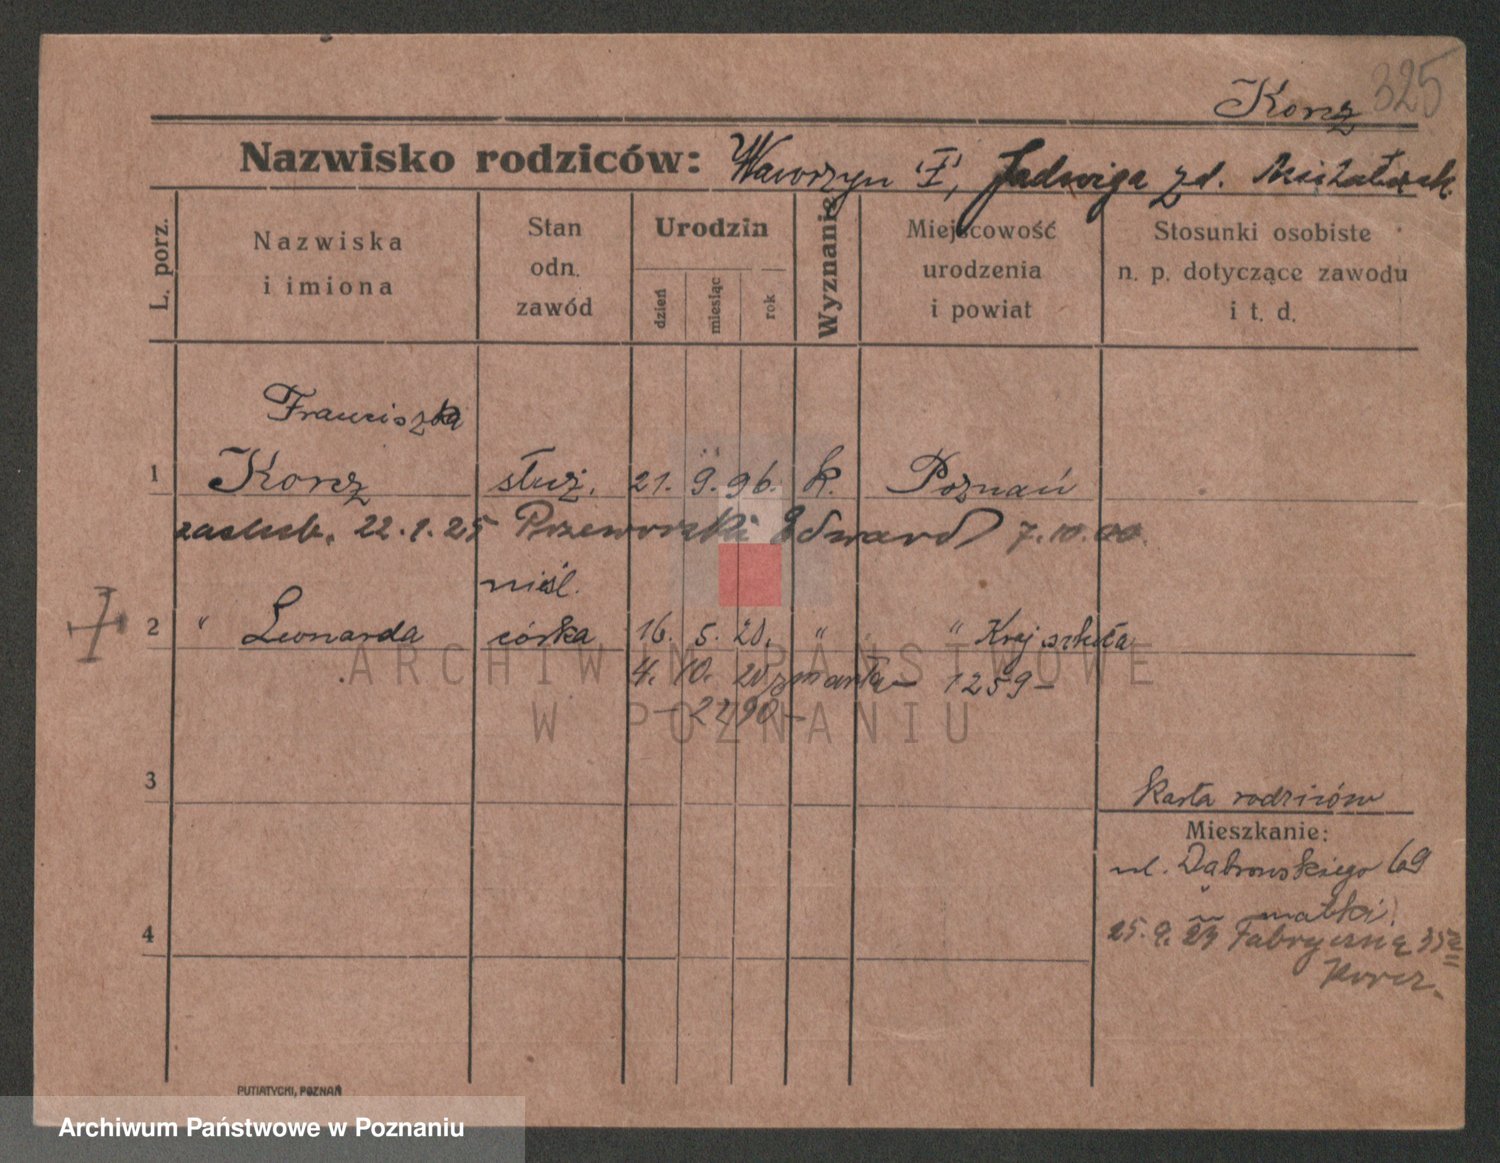 325
Korcz
Nazwisko rodziców: Wawrzyn I, Jadwiga zd.
L. porz.
Nazwiska i imiona
Stan odn. zawód
Urodzin
dzień miesiąc rok
Wyznanie
Miejscowość urodzenia i powiat
Stosunki osobiste n. p. dotyczące zawodu i t. d.
Franciszka
1 Korcz służ. 21. 9. 96. k. Poznań
zaślub. 22.1.25 Przeworski Edward 7.10.00.
nieśl.
2 " Leonarda córka 16. 5. 20. " "
4. 10. 20 zmarła – 1259 –
– 2790 –
3
Karta rodziców
Mieszkanie:
ul. Dąbrowskiego 69
matki
4
25.9.23 Fabryczna 35
Korcz.
PUTIATYCKI, POZNAŃ
ARCHIWUM PAŃSTWOWE
W POZNANIU
Archiwum Państwowe w Poznaniu